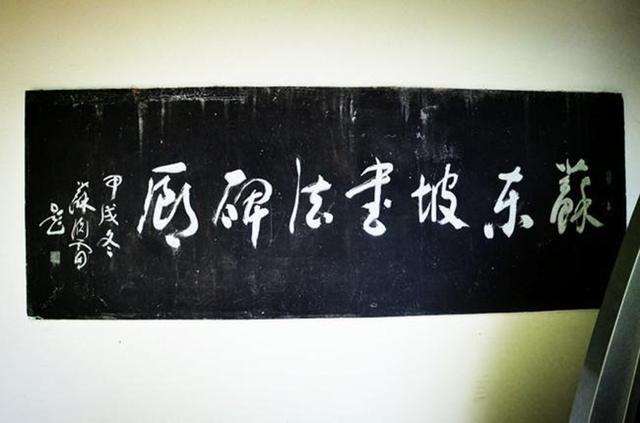 蘇东坡书法碑廊
甲戌冬
蘇
题